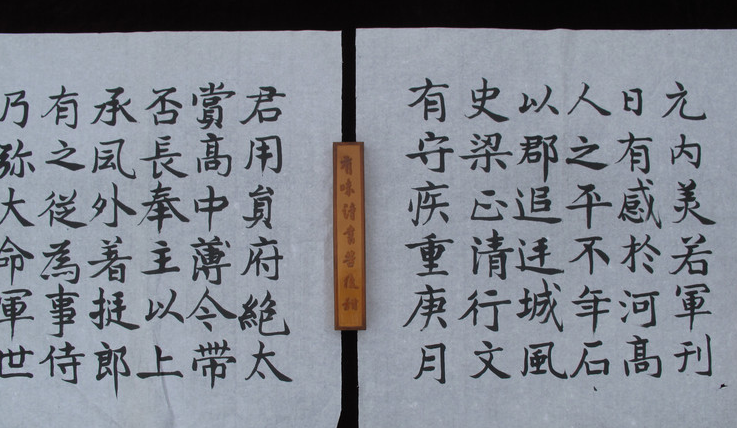 元内美若軍刊
日有感於河髙
人之平不年石
以郡追迋城風
史梁正清行文
有守疾重庚月
有味讀書
君用貟府絶太
賞髙中薄令帶
否長奉主以上
承凨外著挺郎
有之從為事侍
乃弥大命軍世